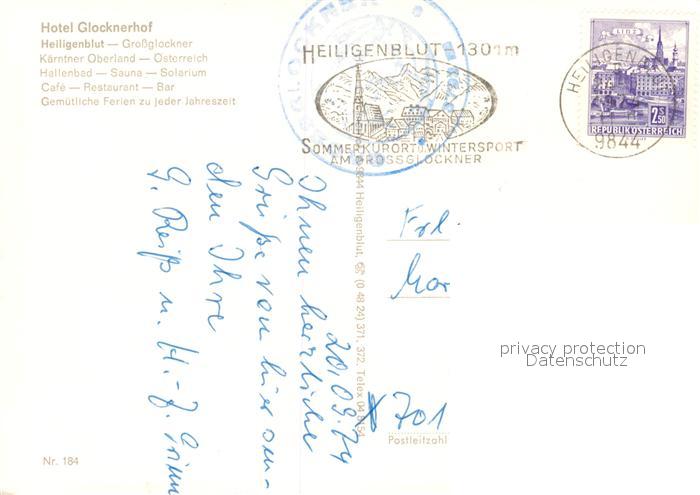 Hotel Glocknerhof
Heiligenblut — Großglockner
Kärntner Oberland — Österreich
Hallenbad — Sauna — Solarium
Café — Restaurant — Bar
Gemütliche Ferien zu jeder Jahreszeit
HEILIGENBLUT 1301m
SOMMERKURORT U. WINTERSPORT
AM GROSSGLOCKNER
LINZ
2.50
REPUBLIK ÖSTERREICH
9844
9844 Heiligenblut, (0 48 24) 371, 372, Telex 04
20.09.74
Ihnen herzliche
Grüße von hier sen-
den Ihre
G. Reiß u. H.-J.
Frl.
Mor
701
Postleitzahl
privacy protection
Datenschutz
Nr. 184